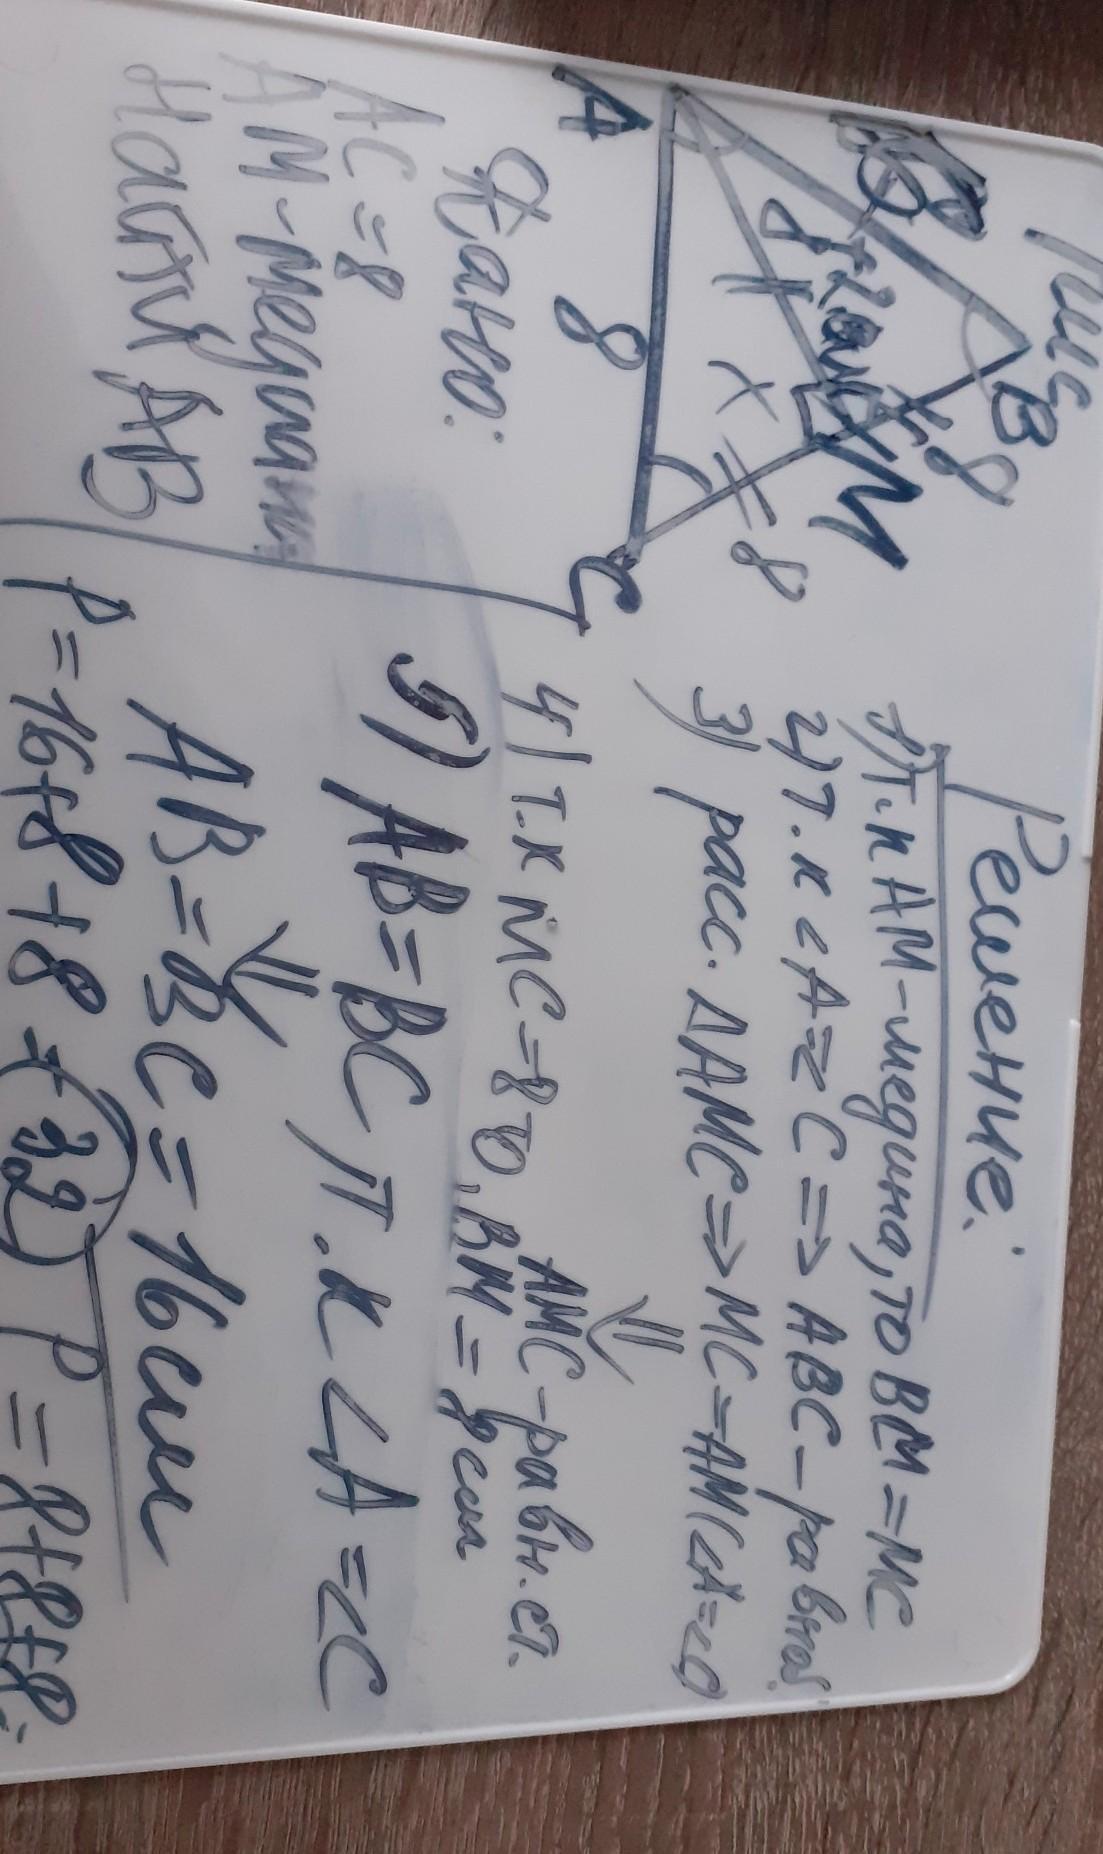 Рис
B
8
M
A
8
x
8
C
Дано:
AC=8
AM-медиана
Найти AB
Решение:
1) Т.к AM-медиана, то BM=MC
2) Т.к <A=<C => ABC-равноб
3) расс. ΔAMC => MC=AM(<A=<C)
⇓
AMC-равн.ст.
4) Т.к MC=8 то, BM=8см
5) AB=BC Т.к <A=<C
⇓
AB=BC=16см
P=16+8+8=32
P=8+8+8=